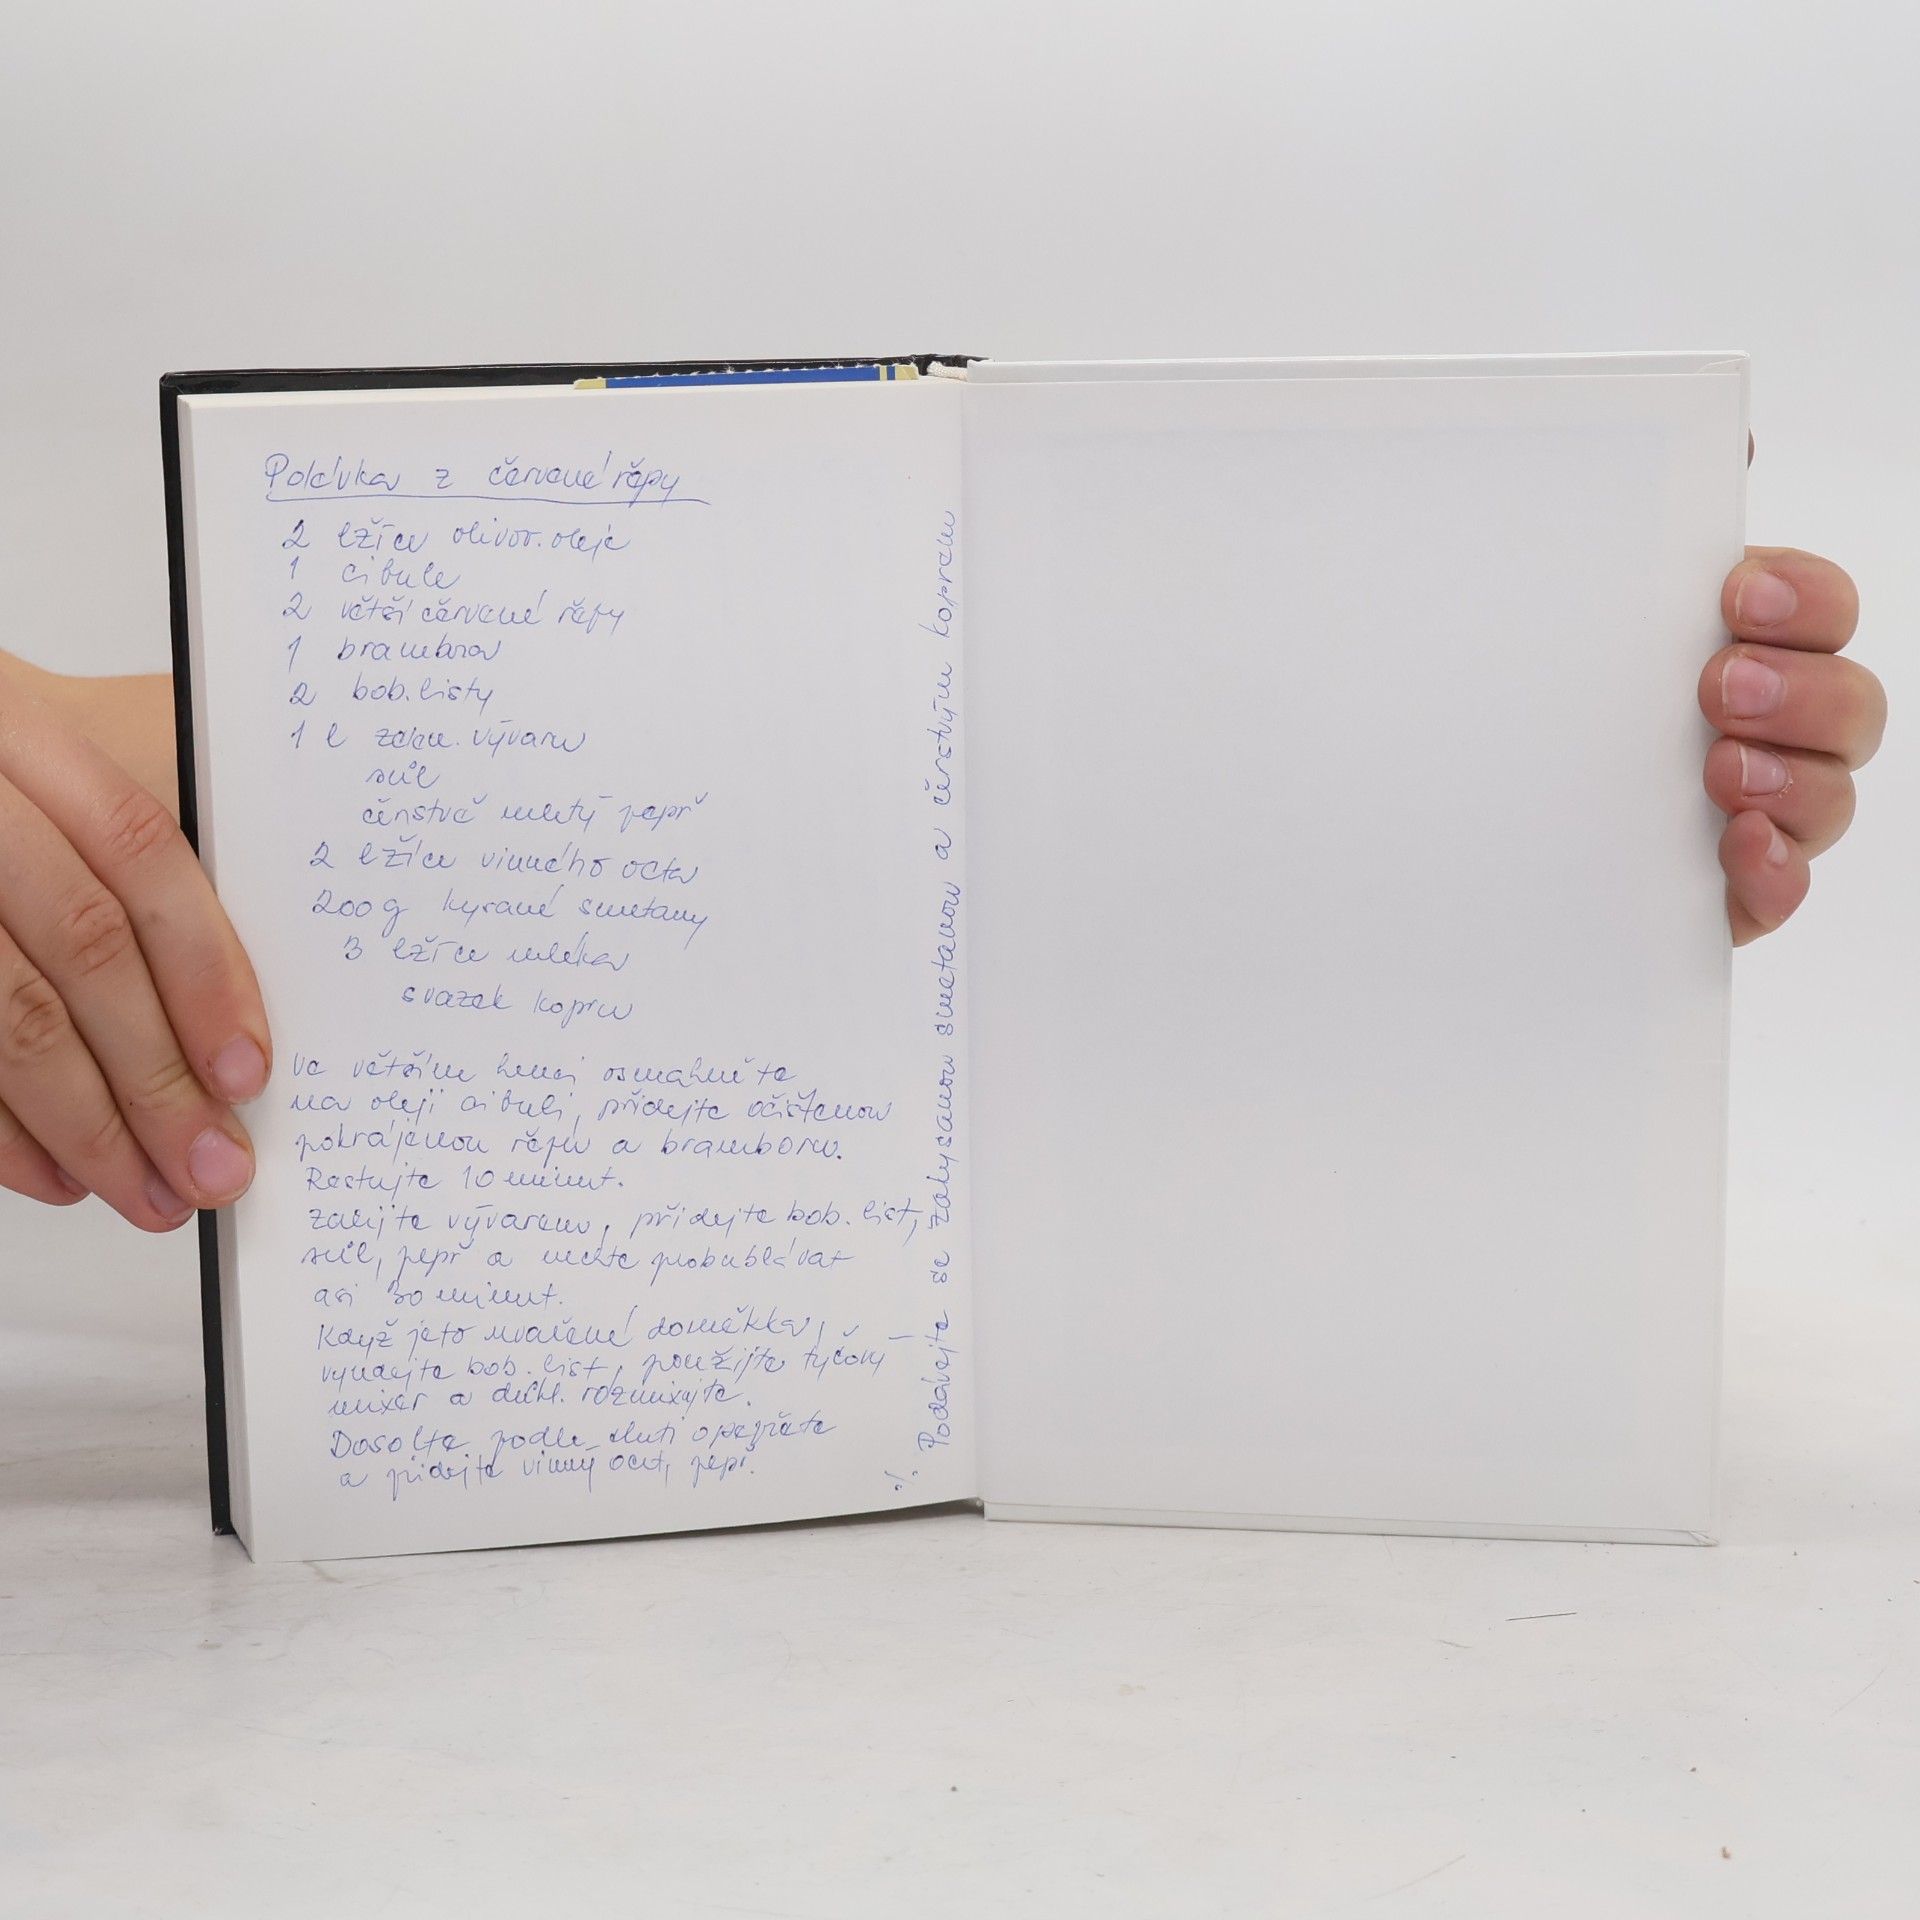 Polévka z červené řepy
2 lžíce olivov. oleje
1 cibule
2 větší červené řepy
1 brambora
2 bob. listy
1 l zelen. vývaru
sůl
čerstvě mletý pepř
2 lžíce vinného octa
200 g kysané smetany
3 lžíce mléka
svazek kopru
Ve větším hrnci osmahněte
na oleji cibuli, přidejte očištěnou
pokrájenou řepu a bramboru.
Restujte 10 minut.
Zalijte vývarem, přidejte bob. list,
sůl, pepř a nechte probublávat
asi 30 minut.
Když je to uvařené doměkka,
vyndejte bob. list, použijte tyčový
mixér a důkl. rozmixujte.
Dosolte podle chuti opepřete
a přidejte vinný ocet, pepř.
./. Podávejte se zakysanou smetanou a čerstvým koprem